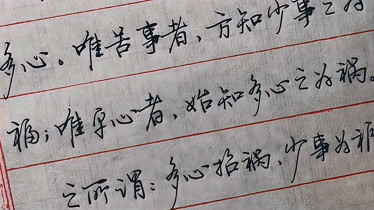 多心。唯苦事者，方知少事之为
福；唯平心者，始知多心之为祸。
之所谓：多心招祸，少事为福